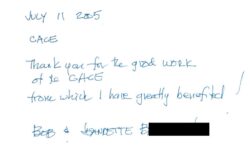 JULY 11 2005
CACE
Thank you for the good work
of the CACE
from which I have greatly benefited!
BOB & JEANNETTE B